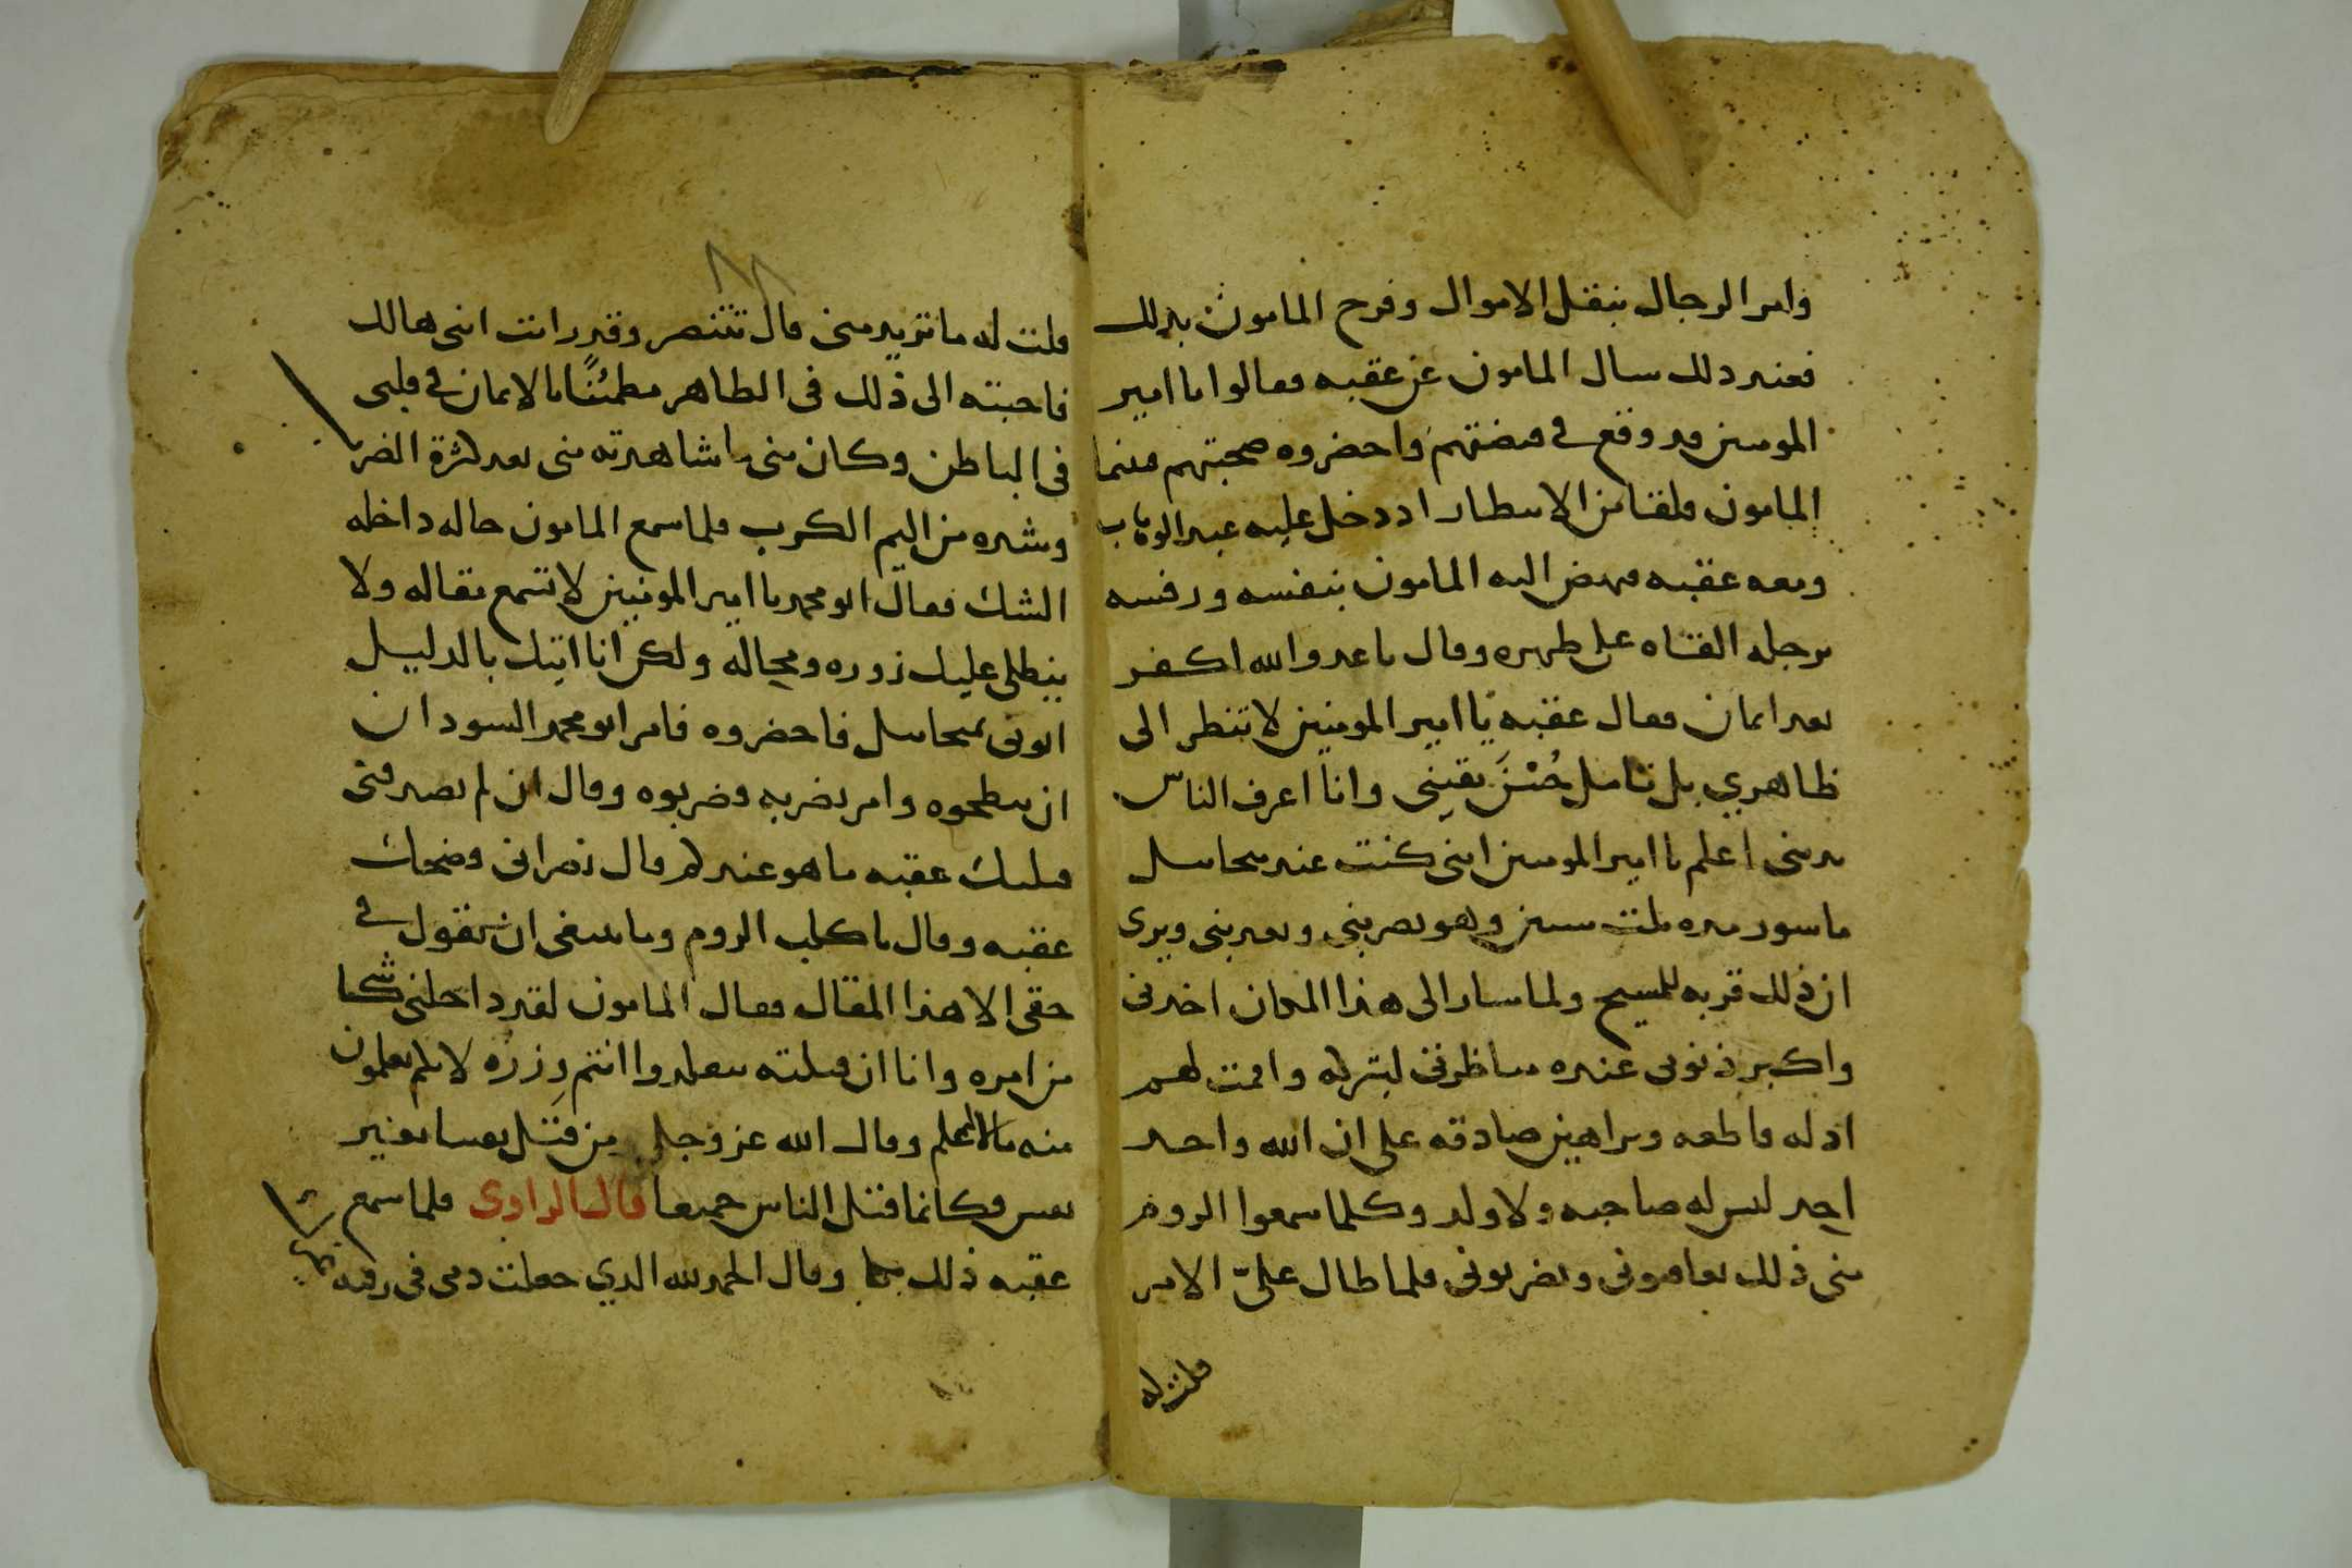 وامر الرجال بنقل الاموال وفرح المامون بدلك
فعند دلك سال المامون عن عقبه فقالوا يا امير
المومنين قد وقع في قبضتهم واحضروه صحبتهم فبينما
المامون قلقا من الانتظار اد دخل عليه عبد الوهاب
ومعه عقبه فنهض اليه المامون بنفسه ورفسه
برجله القاه على ظهره وقال يا عدو الله اكفر
بعد ايمان فقال عقبه يا امير المومنين لا تنظر الى
ظاهري بل تامل حُسْنَ يقيني وانا اعرف الناس
بديني اعلم يا امير المومنين انني كنت عند ميخاييل
ماسور مده ثلث سنين وهو يضربني ويعذبني ويرى
ان ذلك قربه للمسيح ولما سار الى هذا المكان اخدني
واكبر ذنوبي عنده مناظرتي لبتركه واقمت لهم
ادله قاطعه وبراهين صادقه على ان الله واحد
احد ليس له صاحبه ولا ولد وكلما سمعوا الروم
مني ذلك يعاقبوني ويضربوني فلما طال عليّ الامر
قلت له
قلت له ما تريد مني قال تتنصر وقد رايت انني هالك
فاجبته الى ذلك في الظاهر مطمئنًا بالايمان في قلبي
في الباطن وكان مني ما شاهدته مني بعد كثرة الضرب
وشده من اليم الكرب فلما سمع المامون حاله داخله
الشك فقال ابو محمد يا امير المومنين لا تسمع مقاله ولا
ينطلي عليك زوره ومحاله ولكن انا اتيك بالدليل
ايوني بميخاييل فاحضروه فامر ابو محمد السودان
ان يبطحوه وامر بضربه فضربوه وقال ان لم تصدقني
قتلتك عقبه ما هو عندكم قال نصراني فضحك
عقبه وقال يا كلب الروم وما ينبغي ان تقول في
حقي الا هذا المقال فقال المامون لقد داخلني شكا
من امره وانا ان قتلته تتقلدوا انتم وِزرُه لانكم تعلمون
منه ما لا اعلم وقال الله عز وجل من قتل نفسا بغير
نفس فكانما قتل الناس جميعا قال الراوي فلما سمع
عقبه ذلك بكا وقال الحمد لله الدي جعلت دمي في رقبه